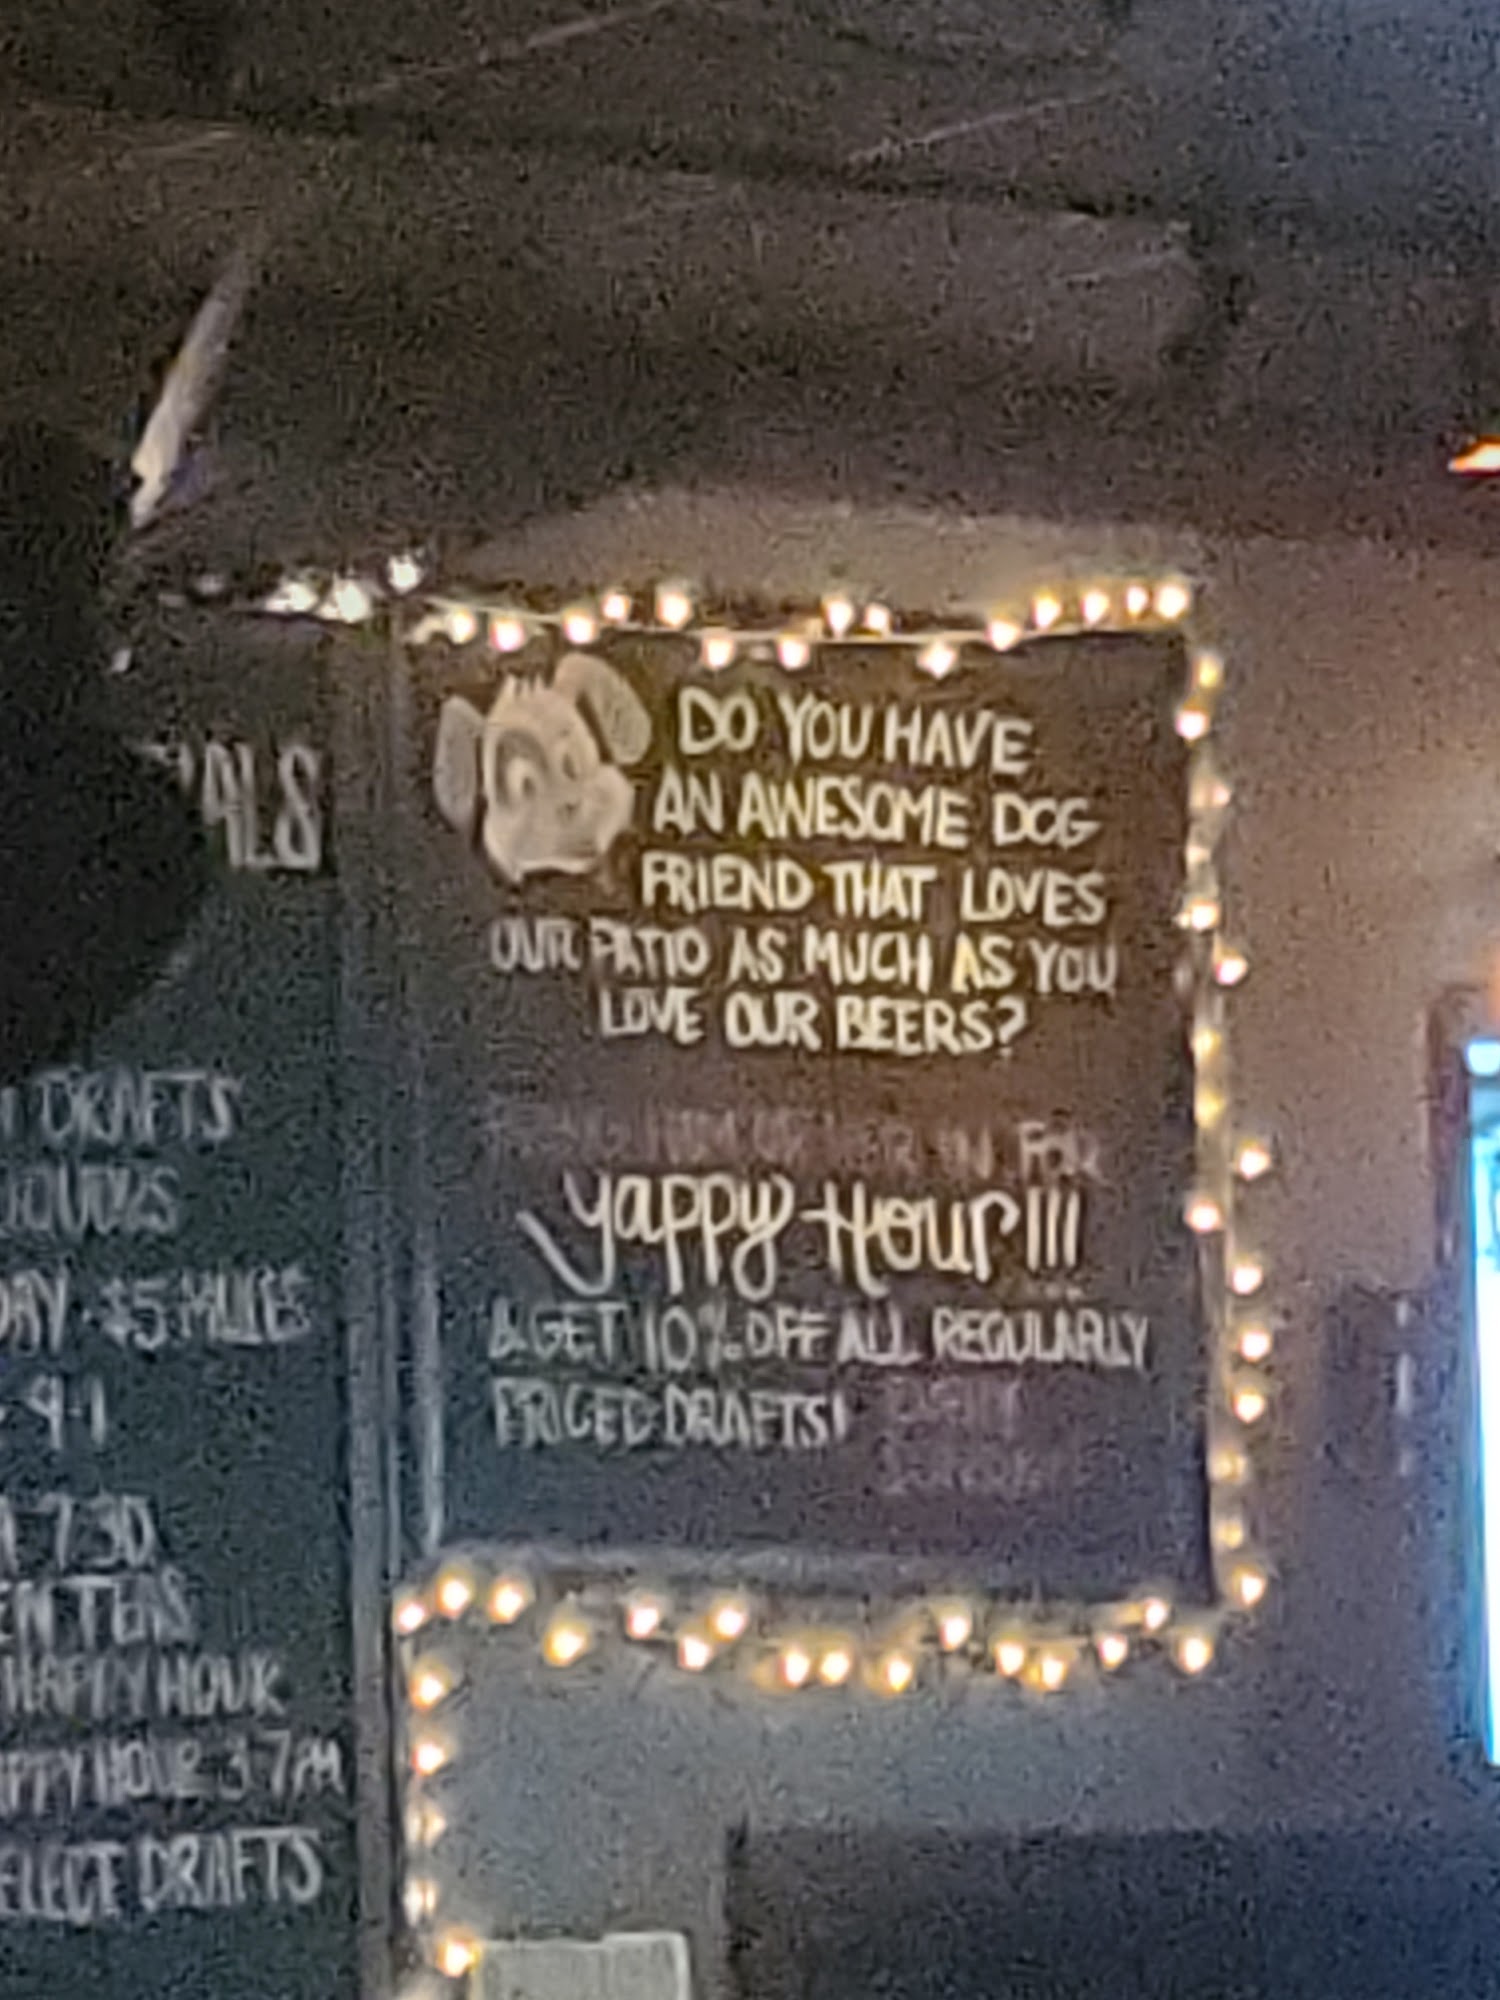 DO YOU HAVE
AN AWESOME DOG
FRIEND THAT LOVES
OUR PATIO AS MUCH AS YOU
LOVE OUR BEERS?
HIM OR HER IN FOR
yappy Hour!!!
& GET 10% OFF ALL REGULARLY
PRICED DRAFTS!
DRAFTS
$5
9-1
7:30
HAPPY HOUR
HOUR 3-7PM
DRAFTS